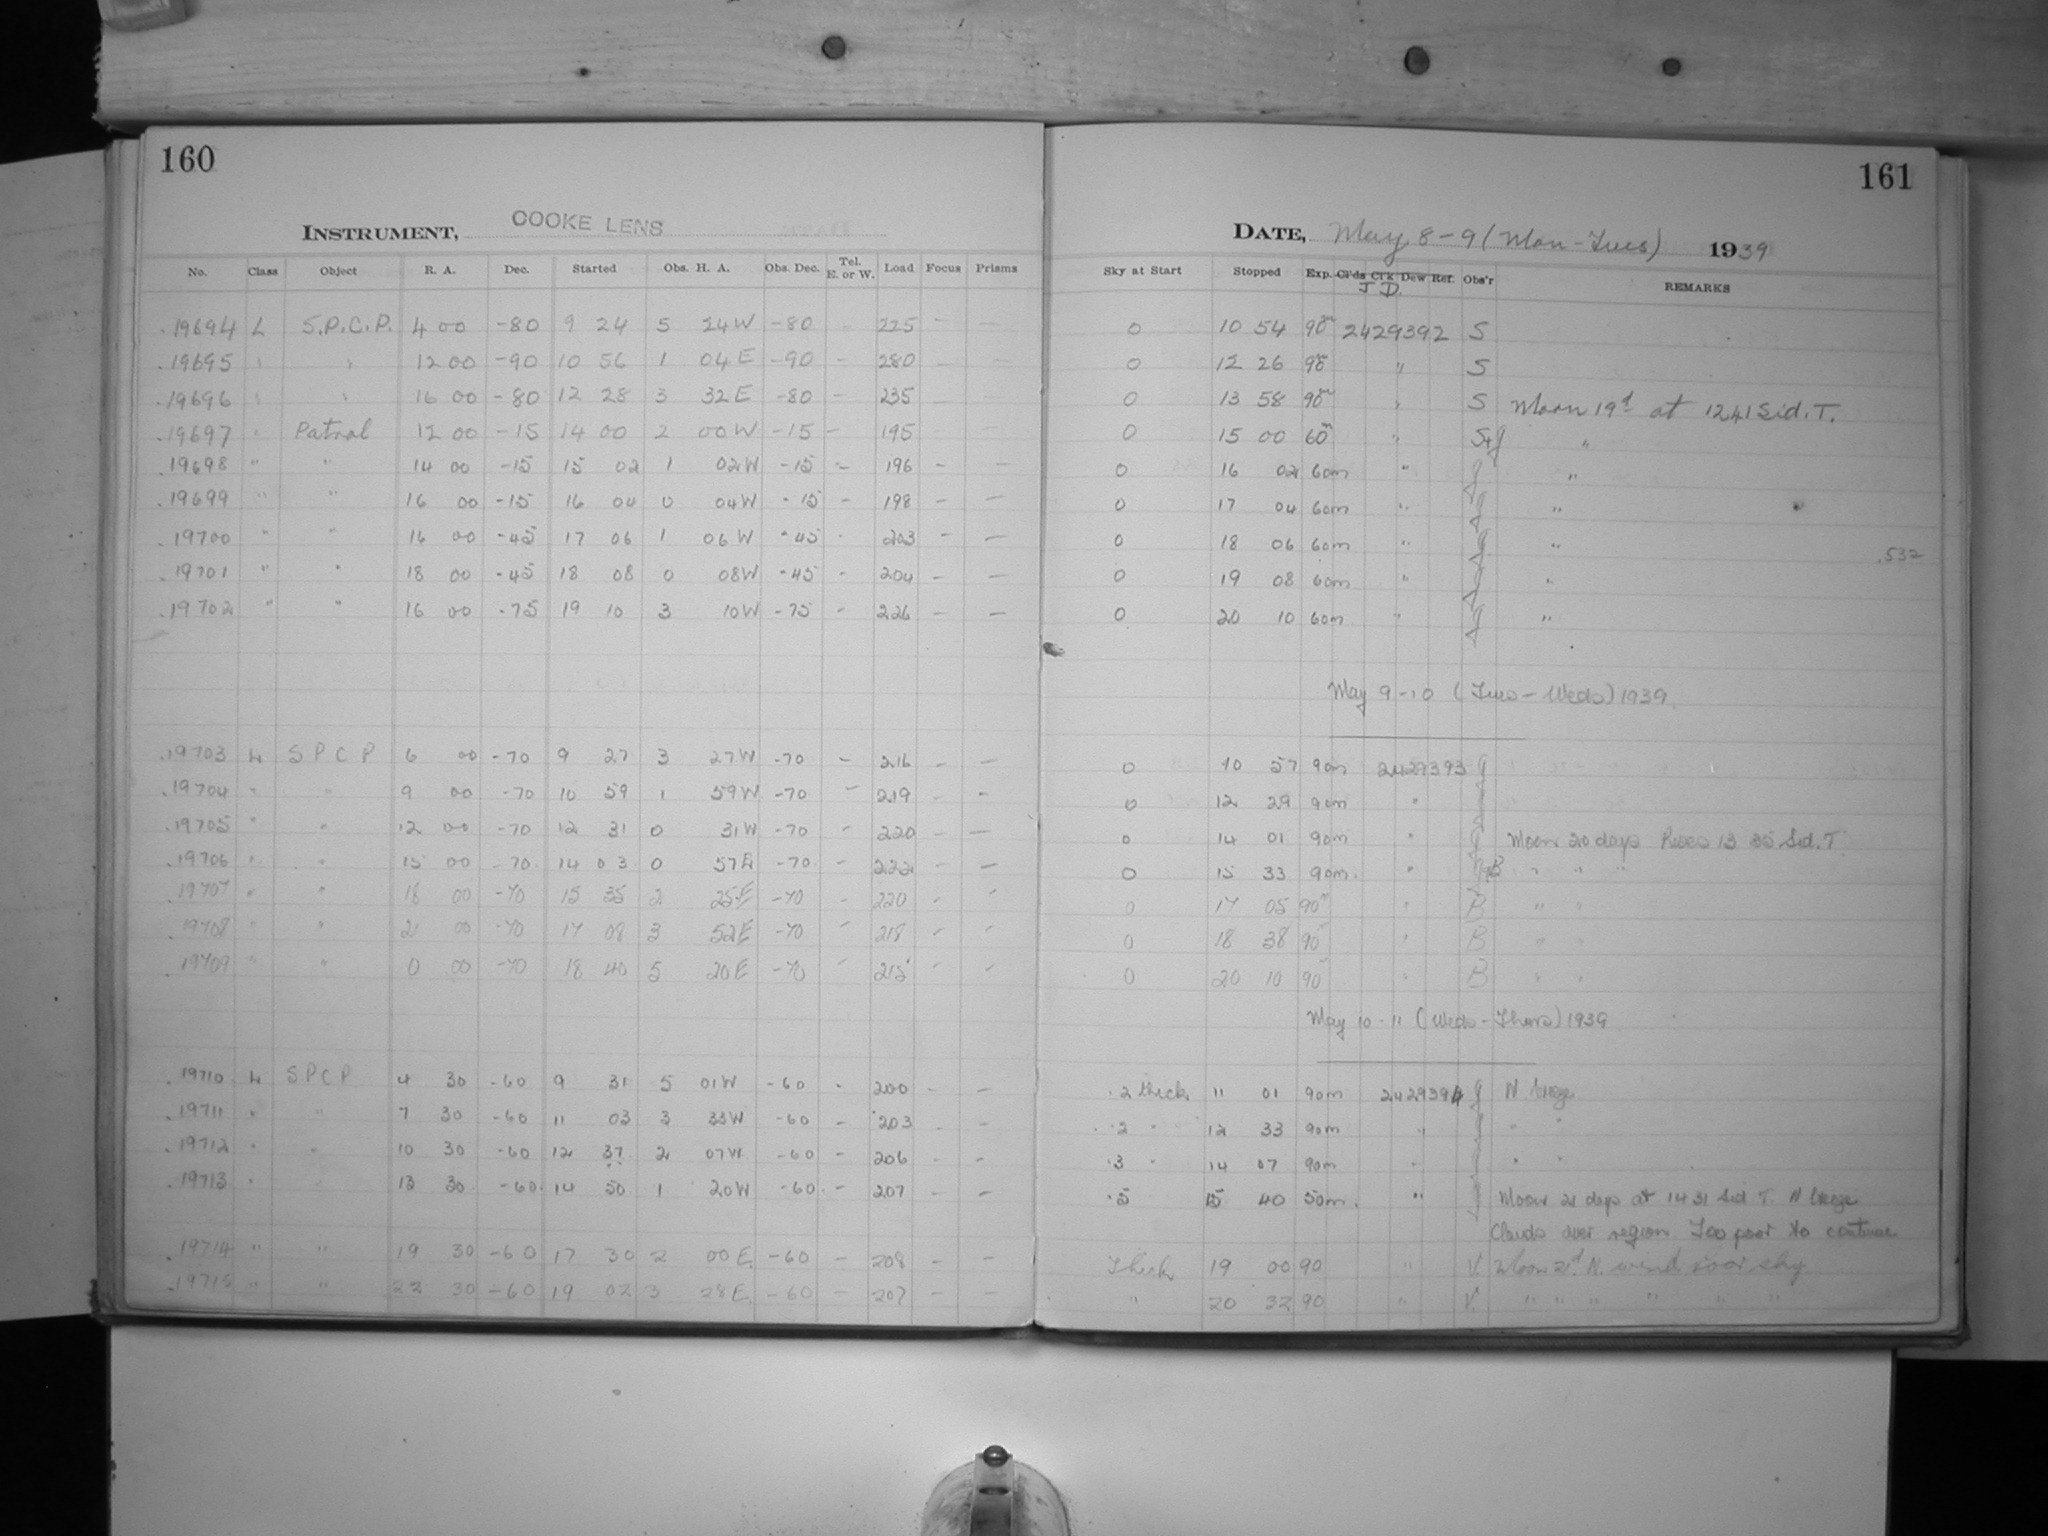 160
INSTRUMENT, COOKE LENS
No. Class Object R. A. Dec. Started Obs. H. A. Obs. Dec. Tel. E. or W. Load Focus Prisms
19694 L S.P.C.P. 4 00 -80 9 24 5 24W -80 - 225 - -
19695 " " 12 00 -90 10 56 1 04E -90 - 280 - -
19696 " " 16 00 -80 12 28 3 32E -80 - 235 - -
19697 " Patrol 12 00 -15 14 00 2 00W -15 - 195 - -
19698 " " 14 00 -15 15 02 1 02W -15 - 196 - -
19699 " " 16 00 -15 16 04 0 04W -15 - 198 - -
19700 " " 16 00 -45 17 06 1 06W -45 - 203 - -
19701 " " 18 00 -45 18 08 0 08W -45 - 204 - -
19702 " " 16 00 -75 19 10 3 10W -75 - 226 - -
19703 L S P C P 6 00 -70 9 27 3 27W -70 - 216 - -
19704 " " 9 00 -70 10 59 1 59W -70 - 219 - -
19705 " " 12 00 -70 12 31 0 31W -70 - 220 - -
19706 " " 15 00 -70 14 03 0 57E -70 - 222 - -
19707 " " 18 00 -70 15 35 2 25E -70 - 220 - -
19708 " " 21 00 -70 17 08 3 52E -70 - 218 - -
19709 " " 0 00 -70 18 40 5 20E -70 - 215 - -
19710 L S P C P 4 30 -60 9 31 5 01W -60 - 200 - -
19711 " " 7 30 -60 11 03 3 33W -60 - 203 - -
19712 " " 10 30 -60 12 37 2 07W -60 - 206 - -
19713 " " 13 30 -60 14 50 1 20W -60 - 207 - -
19714 " " 19 30 -60 17 30 2 00E -60 - 208 - -
19715 " " 22 30 -60 19 02 3 28E -60 - 207 - -
161
DATE, May 8-9 (Mon-Tues) 1939
Sky at Start Stopped Exp. Cl'ds Cl'k Dew Ref. Obs'r REMARKS
J D.
0 10 54 90m 2429392 S
0 12 26 90m " S
0 13 58 90m " S Moon 19d at 1241 Sid. T.
0 15 00 60m " S+g "
0 16 02 60m " g "
0 17 04 60m " "
0 18 06 60m " " .532
0 19 08 60m " "
0 20 10 60m " "
May 9-10 (Tues-Weds) 1939.
0 10 57 90m 2429393 g
0 12 29 90m "
0 14 01 90m " Moon 20 days Rises 13 35 Sid. T.
0 15 33 90m. " g+B " " "
0 17 05 90m " B " "
0 18 38 90 " B " "
0 20 10 90 " B " "
May 10-11 (Weds-Thurs) 1939
.2 thick 11 01 90m 2429394 g N breeze
.2 " 12 33 90m " " "
.3 " 14 07 90m " " "
.5 15 40 50m. " Moon 21 days at 1431 Sid T. N breeze
Clouds over region Too poor to continue
Thick 19 00 90 " V. Moon 21d. N. wind poor sky.
" 20 32 90 " V. " " " " " "